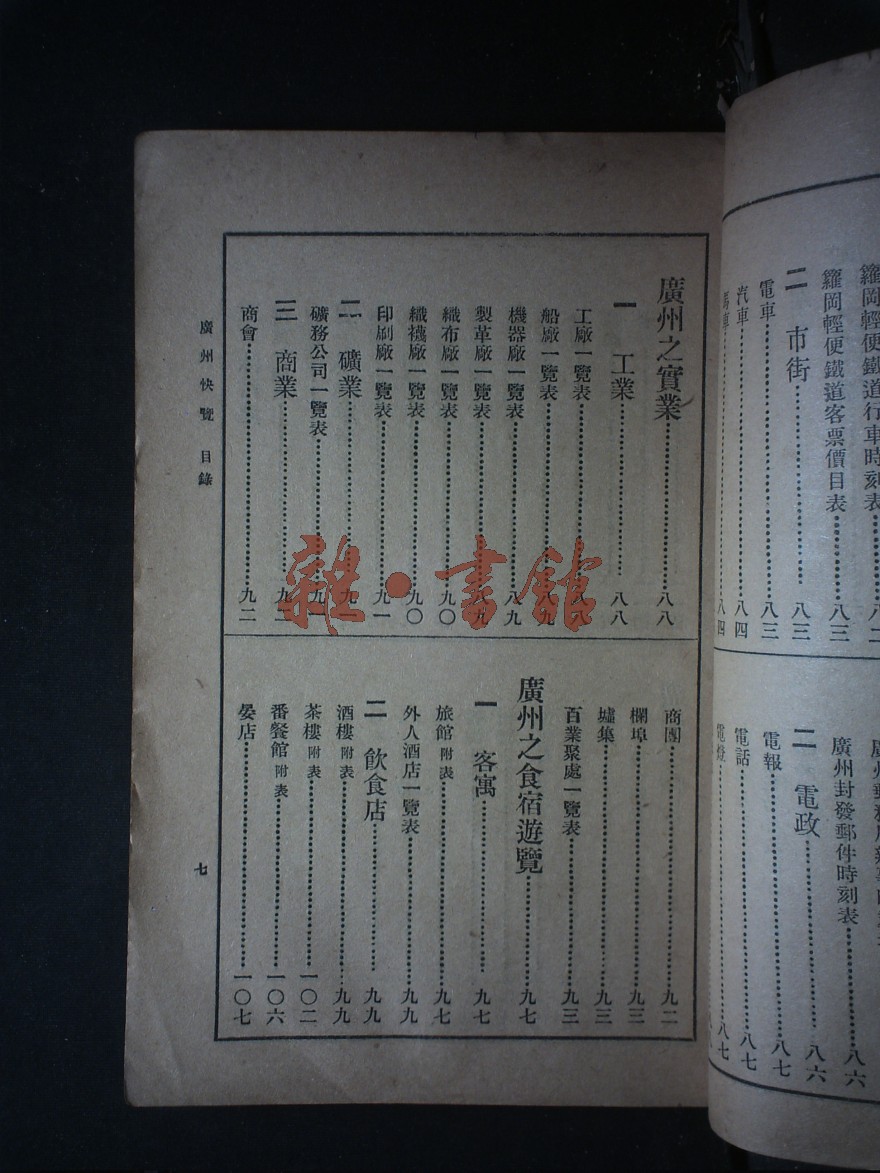 籮岡輕便鐵道行車時刻表……八二
籮岡輕便鐵道客票價目表……八三
二　市街……八三
電車……八三
汽車……八四
馬車……八四
廣州封發郵件時刻表……八六
二　電政……八六
電報……八七
電話……八七
電燈……八七
廣州之實業……八八
一　工業……八八
工廠一覽表……八八
船廠一覽表……八九
機器廠一覽表……八九
製革廠一覽表……八九
織布廠一覽表……九〇
織襪廠一覽表……九〇
印刷廠一覽表……九一
二　礦業……九一
礦務公司一覽表……九一
三　商業……九二
商會……九二
商團……九二
欄埠……九三
墟集……九三
百業聚處一覽表……九三
廣州之食宿遊覽……九七
一　客寓……九七
旅館附表……九七
外人酒店一覽表……九九
二　飲食店……九九
酒樓附表……九九
茶樓附表……一〇二
番餐館附表……一〇六
晏店……一〇七
廣州快覽　目錄
七
雜·書館